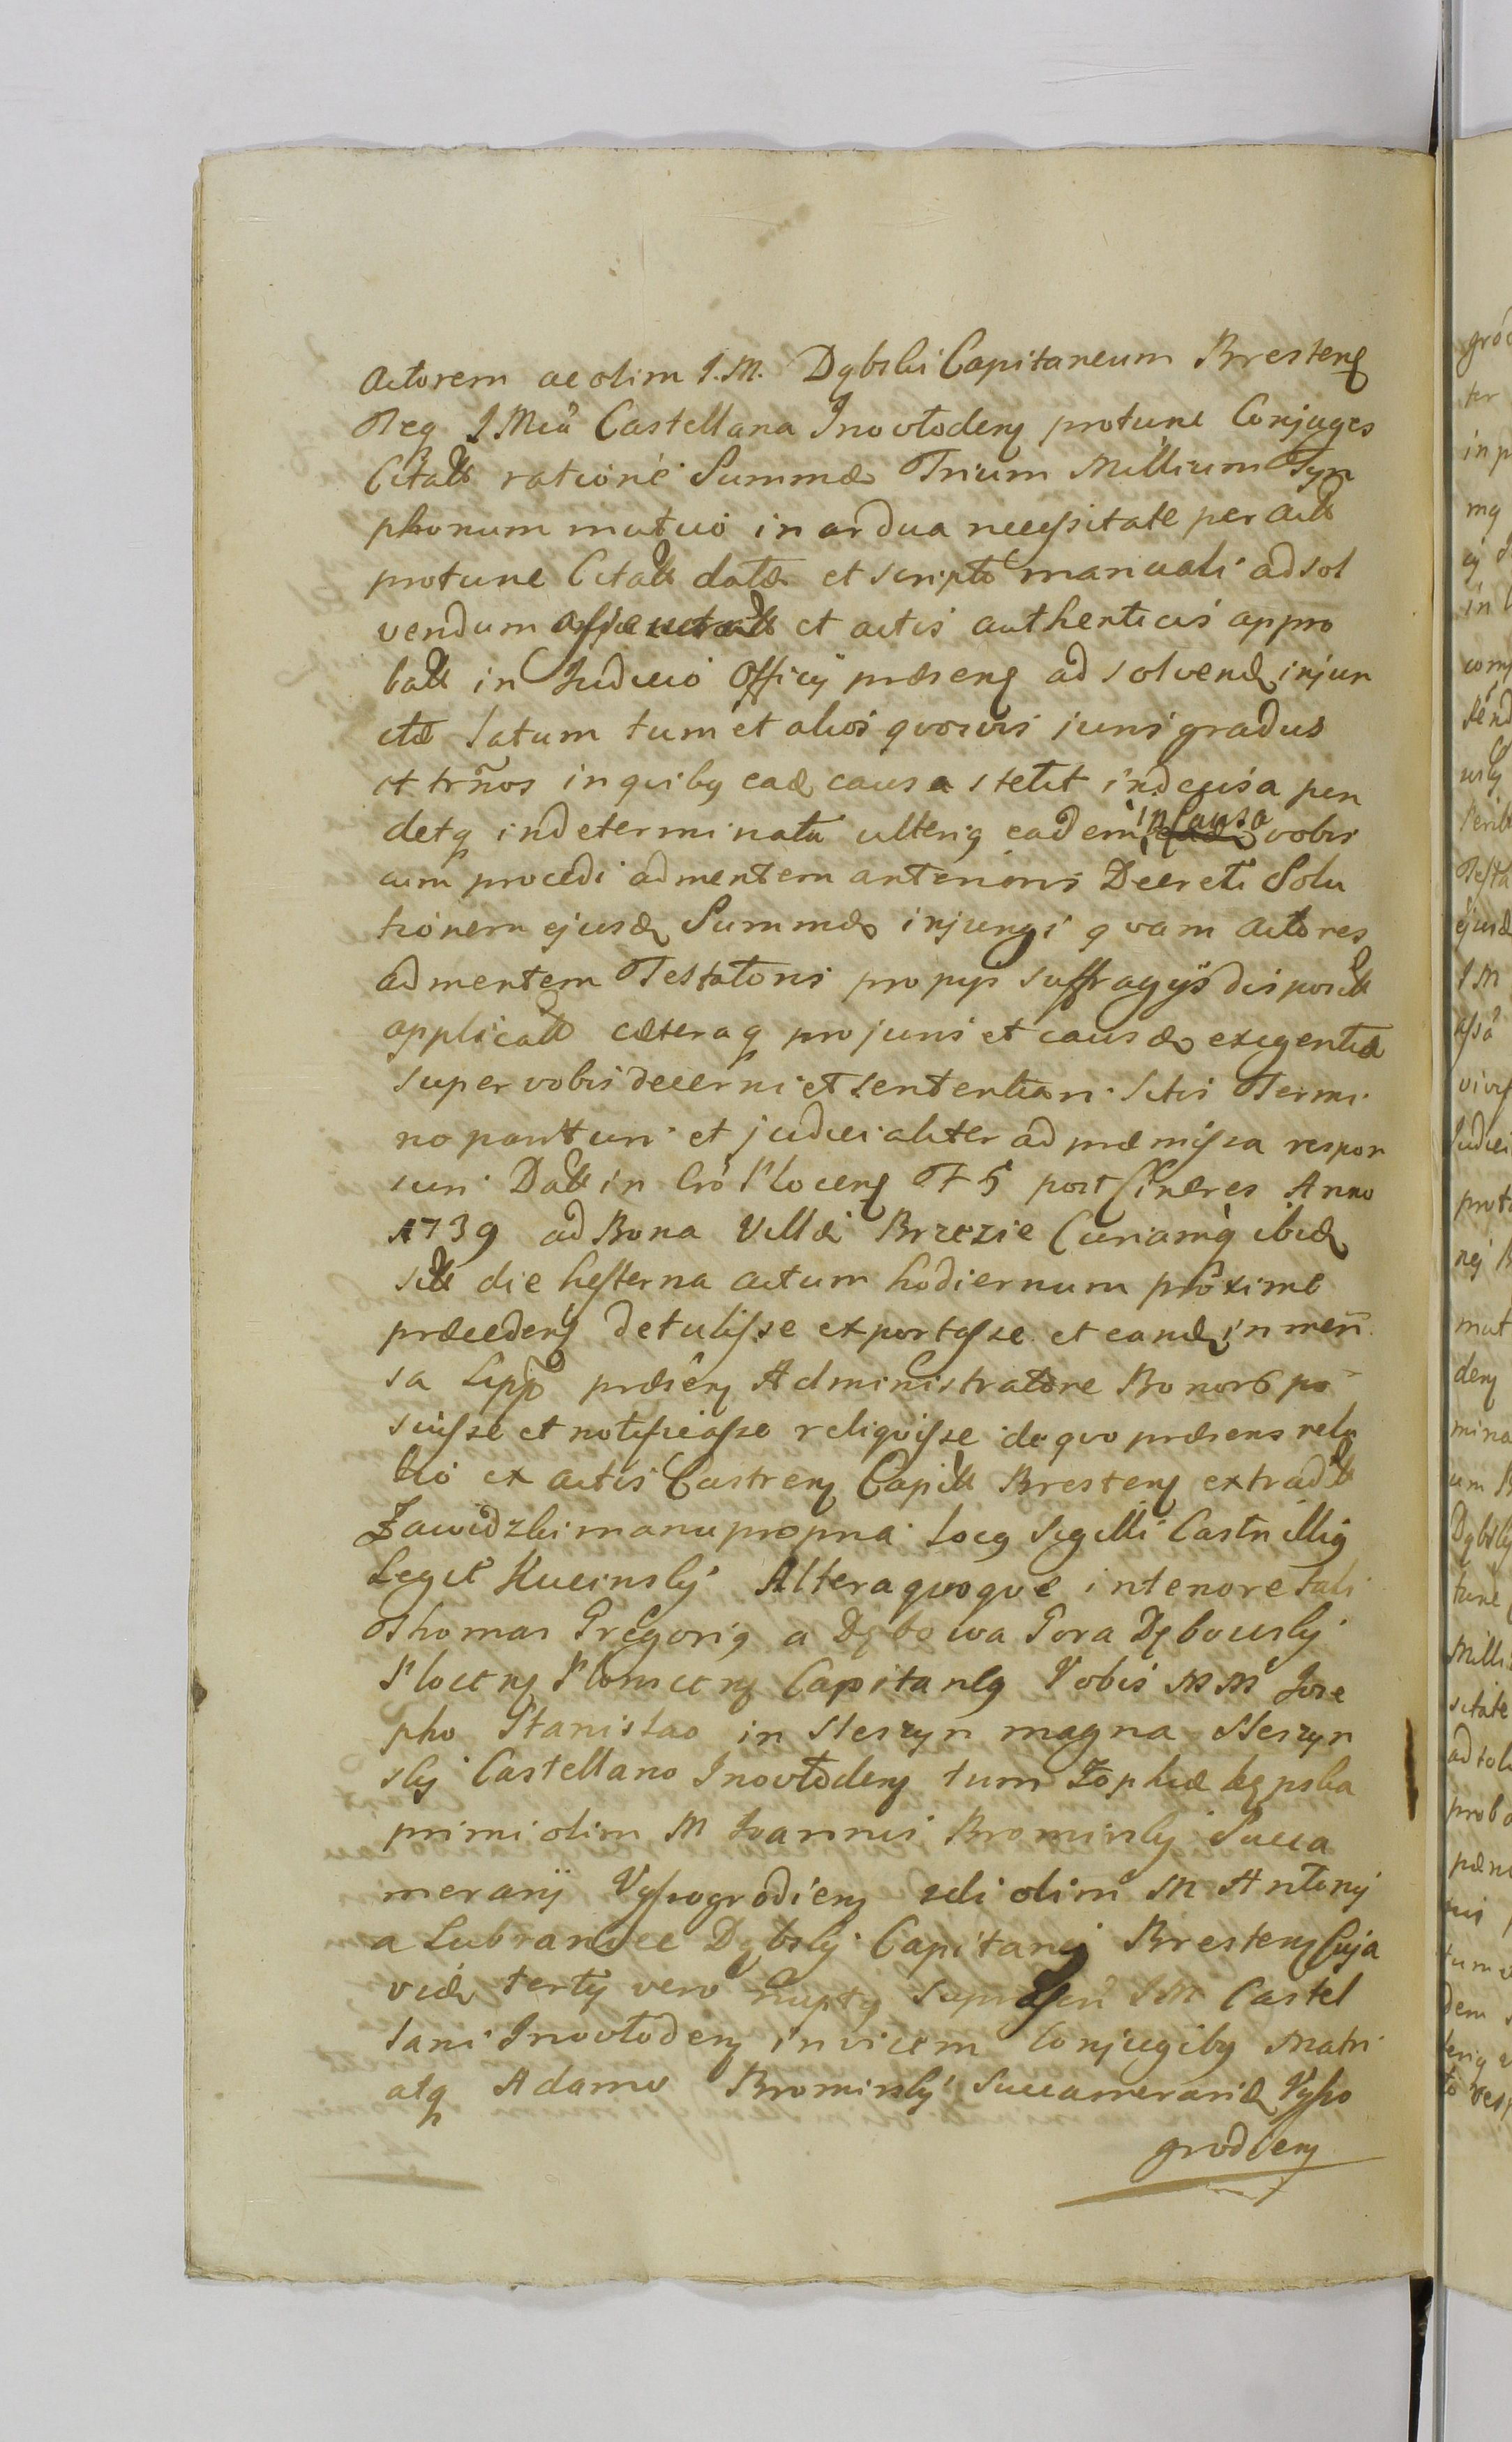 Actorem ac olim I. M. Dąbski Capitaneum Bresteng
Neg I Mcā Castellana Inowłodeng protunc Conjuges
Citatt ratione Summæ Trium Millium Tyn
phonum mutuo in ardua necessitate per Actt
protunc Citatt datæ et scripto manuali ad sol
vendum et actis authenticis appro
batt in Judicio Officij præseng ad solvend injun
ctæ latum tum et alios quosvis juris gradus
et trnos in quibg ead causa stetit indecisa pen
detq indeterminata ulterig eadem in Causa vobis
cum procedi ad mentem anterioris Decreti Solu
tionem ejusd Summæ injungi quam Actores
ad mentem Testatoris pro pijs suffragijs disposit
applicatt cæteraq pro juris et causæ exigentia
super vobis decerni et sententiari. Sitis Termi
no parituri et judicialiter ad præmissa respon
suri Datt in Cro Ploceng F 5 post Cineres Anno
1739 ad Bona Villæ Brzezie Curiamq ibid
sitt die hesterna actum hodiernum proxime
præcedeng detulisse exportasse et eand in men
sa Lipp præseng Administratore Bonor po
suisse et notificasse reliquisse de quo præsens rela
tio ex actis Castreng Capitt Bresteng extradtt
Zawidzki manu propria Locg Sigilli Castr illig
Legit Kucinskj Altera quoque in tenore tali
Thomas Gregorig a Dębowa Gora Dębowskj
Ploceng Plonsceng Capitaneg Vobis M M Jose
pho Stanislao in Sleszyn magna Sleszyn
skj Castellano Inowłodeng tum Zophiæ Kępska
primi olim M Joannis Brominskj Succa
merarij Vyssogrodieng sdi olim M Antonij
a Lubraniec Dąbskj Capitanei Bresteng Cuja
viæ tertij vero nuptg I M Castel
lani Inowłodeng invicem Conjugibg Matri
atq Adamo Brominskj Succamerarid Vysso
grodieng